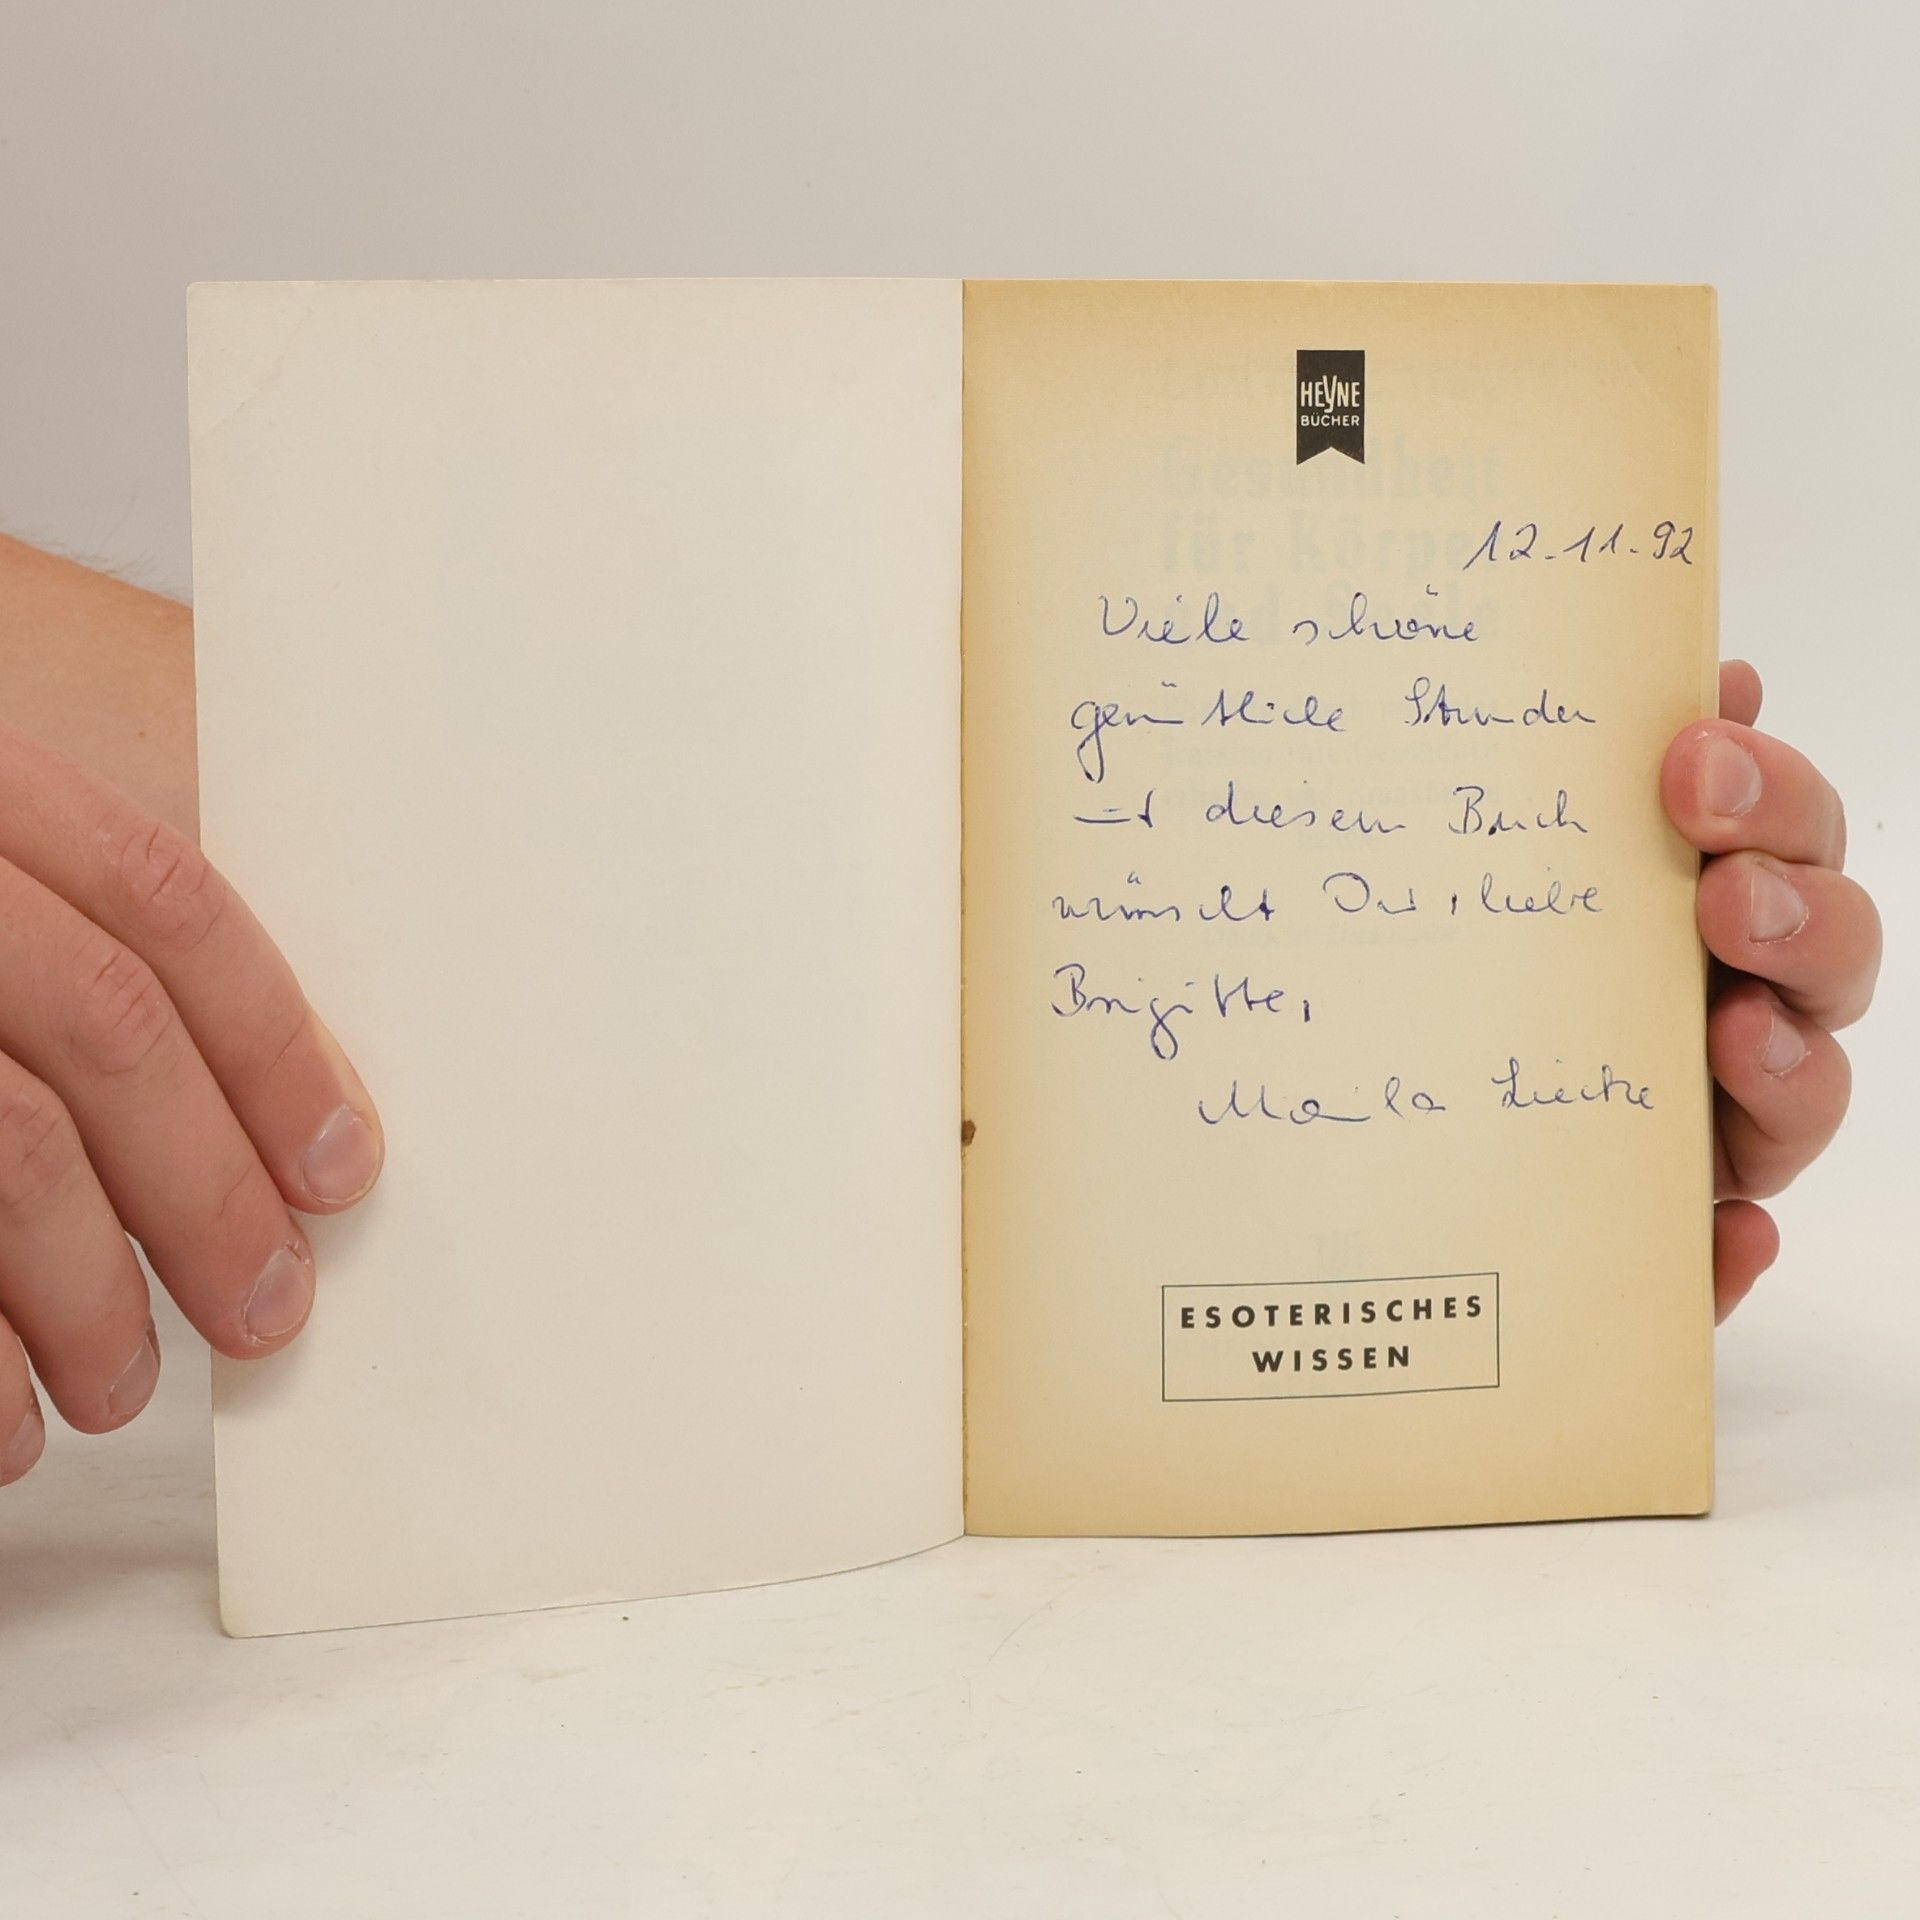 HEYNE
BÜCHER
12.11.92
Viele schöne
gemütliche Stunden
mit diesem Buch
wünscht Dir, liebe
Brigitte,
ESOTERISCHES
WISSEN